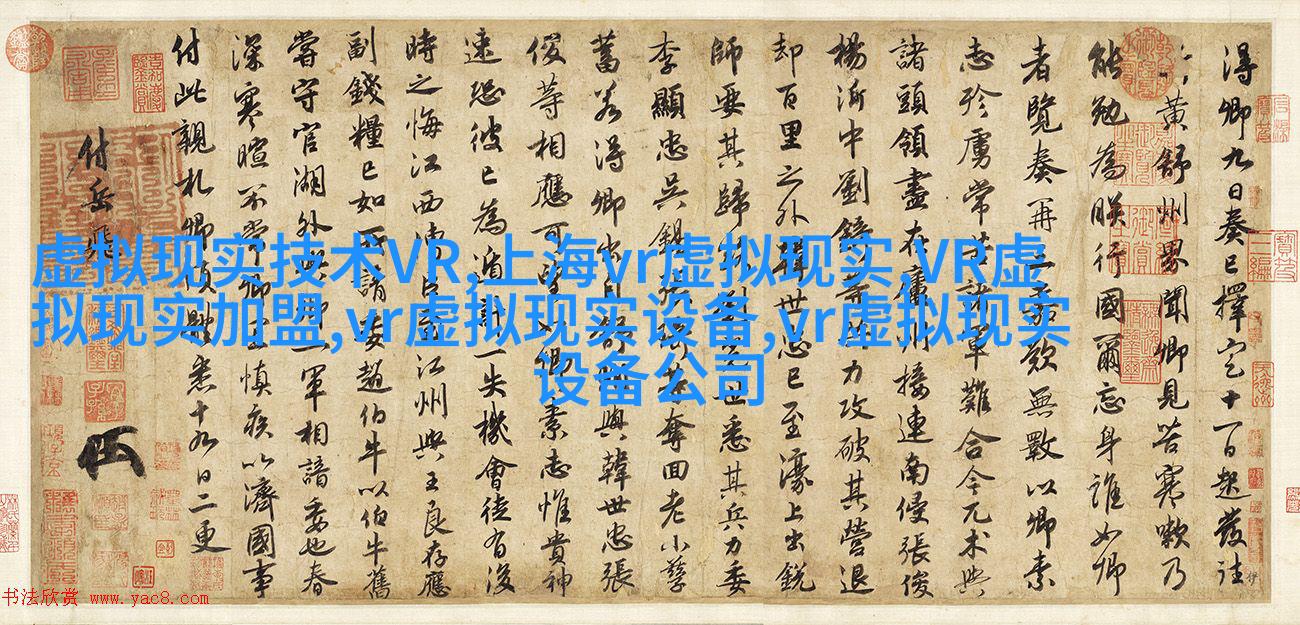 得卿九日奏已擇定十一日起發往
黃舒州界聞卿見苦寒嗽乃
能勉為朕行國爾忘身誰如卿
者覽奏再三嘉歎無斁以卿素
志殄虜常苦諸軍難合今兀朮與
諸頭領盡在廬州接連南侵張俊
楊沂中劉錡等共力攻破其營退
却百里之外韓世忠已至濠上出銳
師要其歸路劉光世悉其兵力委
李顯忠吳錫張琦等奪回老小孳
畜若得卿出自舒州與韓世忠張
俊等相應可望如卿素志惟貴神
速恐彼已為遁計一失機會徒有後
時之悔江西漕臣至江州與王良存應
副錢糧已如所請委趙伯牛以伯牛舊
嘗守官湖外與卿一軍相諳委也春
深寒暄不常卿宜慎疾以濟國事
付此親札卿須體悉十九日二更
付岳飛
虚拟现实技术VR,上海vr虚拟现实 VR虚
拟现实加盟,vr虚拟现实设备,vr虚拟现实
设备公司
书法欣赏 www.yac8.com